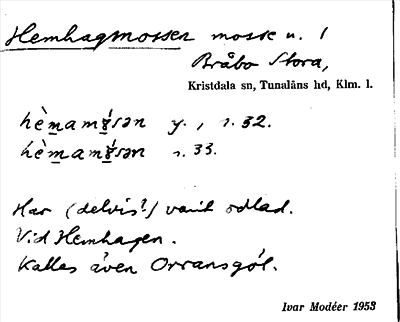 Hemhagsmossen mosse n. 1
Bråbo Stora,
Kristdala sn, Tunaläns hd, Klm. l.
hèmamɤ́sən y., r. 32.
hèmamɤ́sən r. 33.
Har (delvis?) varit odlad.
Vid Hemhagen.
Kallas även Orransgöl.
Ivar Modéer 1953